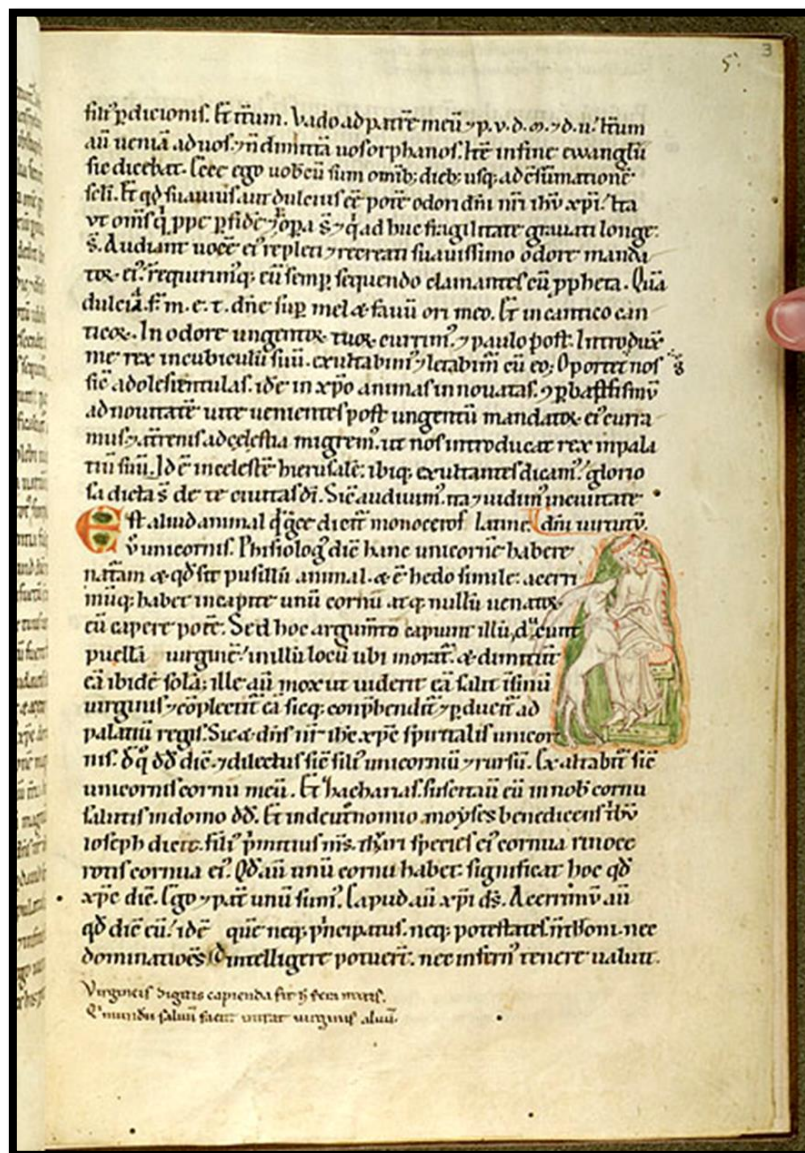 3
5.
filiꝰ ꝑdicionis. Et itͥum. Vado ad patrē meū ⁊ p. v. d. m. ⁊ d. u. Itͥum
aū ueniā ad uos. ⁊ ñ dimittā uos orphanos. Itē in fine ewanglii
sic diceb̄at. Ecce ego uobcū sum omīb; dieb; usq; ad c̄sūmationē
sc̄li. Et qd̄ suauiꝰ. aut dulciꝰ eē potē odori dn̄i nr̄i ihv̄ xp̄i. Ita
vt om̄s q̄ ꝓpe ꝑ fidē ⁊ oꝑa s̄ ⁊ q̄ ad huc fragilitate grauati longe
s̄. Audiant uocē eiꝰ repleti ⁊ recreati suauissimo odore manda
toꝝ eiꝰ. req̄uirimꝰq; eū semꝑ sequendo clamantes cū ꝓpheta. Quā
dulcia. f. m. e. t. dn̄e suꝑ mel & fauū ori meo. Et in cantico can
ticoꝝ. In odore ungentoꝝ tuoꝝ currimꝰ. ⁊ paulo post. Introdux̄
me rex in cubiculū suū. exultabimꝰ ⁊ letabim̄ cū eo; Oportet nos
sic̄ adolescentulas. idē in xp̄o animas innouatas. ⁊ ꝑ baptismv̄
ad nouitatē uite uenientes post ungentū mandatoꝝ eiꝰ curra
mus. ⁊ a tr̄enis ad celestia migremꝰ. ut nos introducat rex in pala
tiū suū. Id ē in celestē hierusalē. ibiq; exultantes dicamꝰ. glorio
sa dicta s̄ de te ciuitas dī. Sic̄ audiuimꝰ. ita ⁊ uidimꝰ in ciuitate
Est aliud animal qd̄ gce dicit̄ monoceros latine dn̄i uirtutv̄.
v̄ unicornis. Phisiologꝰ dic̄ hanc unicornē habere
nat̄am & qd̄ sit pusillū animal. & ē hedo simile: acerri
mūq; habet in capite unū cornu atq; nullꝰ uenatoꝝ
eū capere potē. Sed hoc argumto capiunt illū, ducunt
puellā uirginē. in illū locū ubi morat̄. & dimittūt
eā ibidē solā: ille aū mox ut uiderit eā salit ī sinū
uirginis ⁊ c̄oplectit̄ eā sicq; conp̄hendit̄ ⁊ ꝑducit̄ ad
palatiū regis. Sic & dn̄s nr̄ ihc xp̄c spiritalis unicor
nis. d̄ q̄ dd̄ dic̄ ⁊ dilectus sic̄ filiꝰ unicorniū ⁊ rursū. Exaltabit̄ sic̄
unicornis cornu meū. Et zacharias. suscitauī eū in nob̄ cornu
salutis in domo dd̄. Et in deut̄nomio moyses benedicens tbv̄
ioseph dicit. filiꝰ p̄mitiuꝰ mꝰs. tauri species eiꝰ cornua rinoce
rotis cornua eiꝰ. Qd̄ aū unū cornu habet: significat hoc qd̄
xp̄c dic̄. Ego ⁊ pat̄ unū sumꝰ. Caput aū xp̄i ds̄. Acerrimv̄ aū
qd̄ dic̄ eū. idē quē neq; p̄ncipatus. neq; potestates. ñ troni. nec
dominatiōes intelligere potuer̄t. nec infernꝰ tenere ualuit.
Virgineis digitis capienda fit hec fera mitis.
Qui mundū saluū facit intrat uirginis aluū.